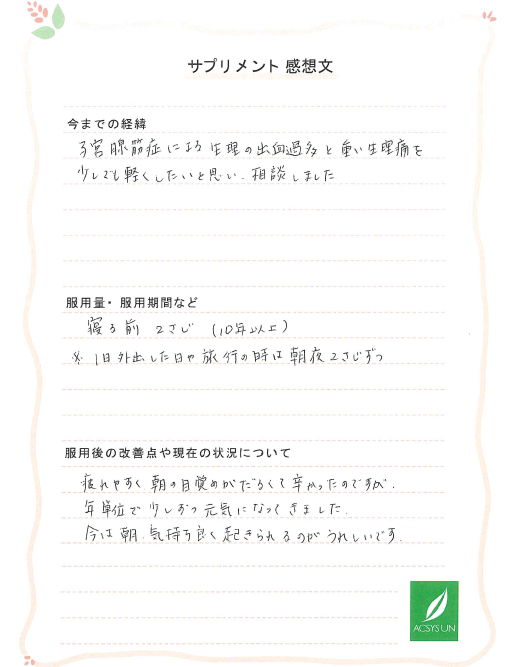 サプリメント 感想文
今までの経緯
子宮腺筋症による生理の出血過多と重い生理痛を
少しでも軽くしたいと思い、相談しました
服用量・服用期間など
寝る前 2さじ (10年以上)
※ 1日外出した日や旅行の時は朝夜2さじずつ
服用後の改善点や現在の状況について
疲れやすく朝の目覚めがだるくて辛かったのですが、
年単位で少しずつ元気になってきました。
今は朝、気持ち良く起きられるのがうれしいです。
ACSYSUN